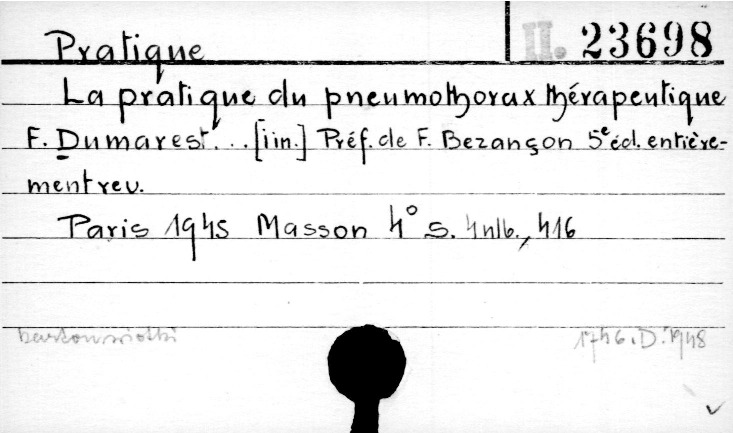 II. 23698
Pratique
La pratique du pneumothorax thérapeutique
F. Dumarest... [iin.] Préf. de F. Bezançon 5e éd. entière-
ment rev.
Paris 1945 Masson 4° s. 4 nlb., 416
1746.D.1948